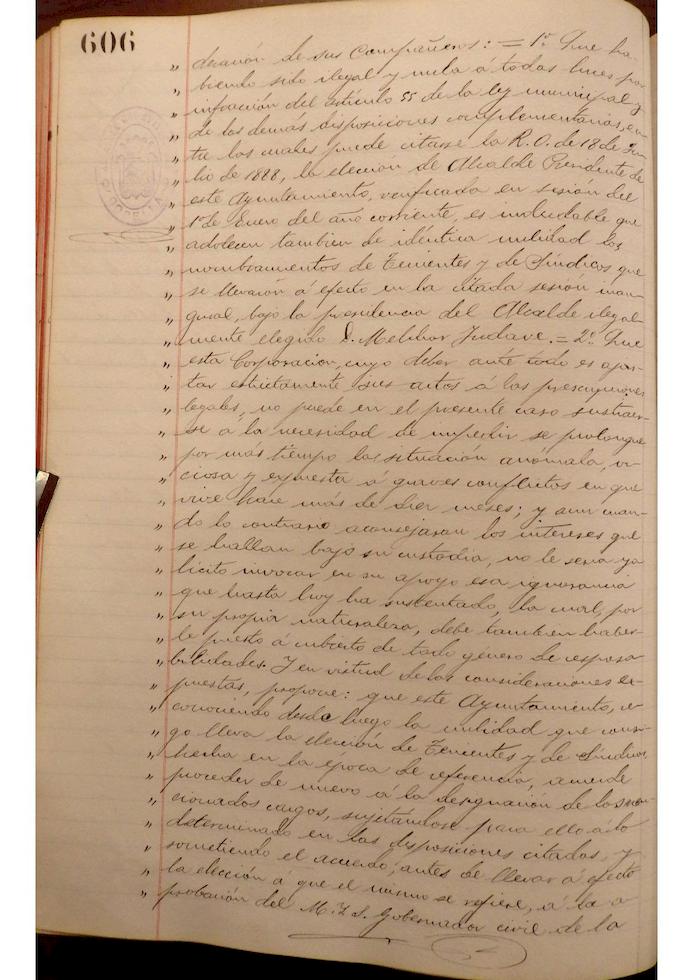 606
„ deración de sus Compañeros: = 1º Que ha-
„ biendo sido ilegal y nula á todas luces por
„ infracción del artículo 55 de la ley municipal y
„ de las demás disposiciones complementarias, en-
„ tre las cuales puede citarse la R. O. de 18 de Ju-
„ lio de 1888, la elección de Alcalde Presidente de
„ este Ayuntamiento, verificada en sesión del
„ 1º de Enero del año corriente, es indudable que
„ adolecen tambien de idéntica nulidad los
„ nombramientos de Tenientes y de Síndicos que
„ se llevaron á efecto en la citada sesión inau-
„ gural, bajo la presidencia del Alcalde ilegal-
„ mente elegido D. Melchor = 2º Que
„ esta Corporación, cuyo deber ante todo es ajus-
„ tar estrictamente sus actos á las prescripciones
„ legales, no puede en el presente caso sustraer-
„ se a la necesidad de impedir se prolongue
„ por más tiempo la situación anómala, vi-
„ ciosa y expuesta á graves conflictos en que
„ vive hace más de meses; y aun cuan-
„ do lo contrario aconsejaran los intereses que
„ se hallan bajo su custodia, no le seria ya
„ lícito invocar en su apoyo esa ignorancia
„ que hasta hoy ha sustentado, la cual, por
„ su propia naturaleza, debe tambien haber-
„ le puesto á cubierto de todo género de responsa
„ bilidades. Y en virtud de las consideraciones ex-
„ puestas, propone: que este Ayuntamiento, re-
„ conociendo desde luego la nulidad que consi-
„ go lleva la elección de Tenientes y de Síndicos
„ hecha en la época de referencia, acuerde
„ proceder de nuevo á la designación de los men-
„ cionados cargos, sujetándose para ello á lo
„ determinado en las disposiciones citadas, y
„ sometiendo el acuerdo, antes de llevar á efecto
„ la elección á que el mismo se refiere, á la a
„ probación del M. I. S. Gobernador civil de la